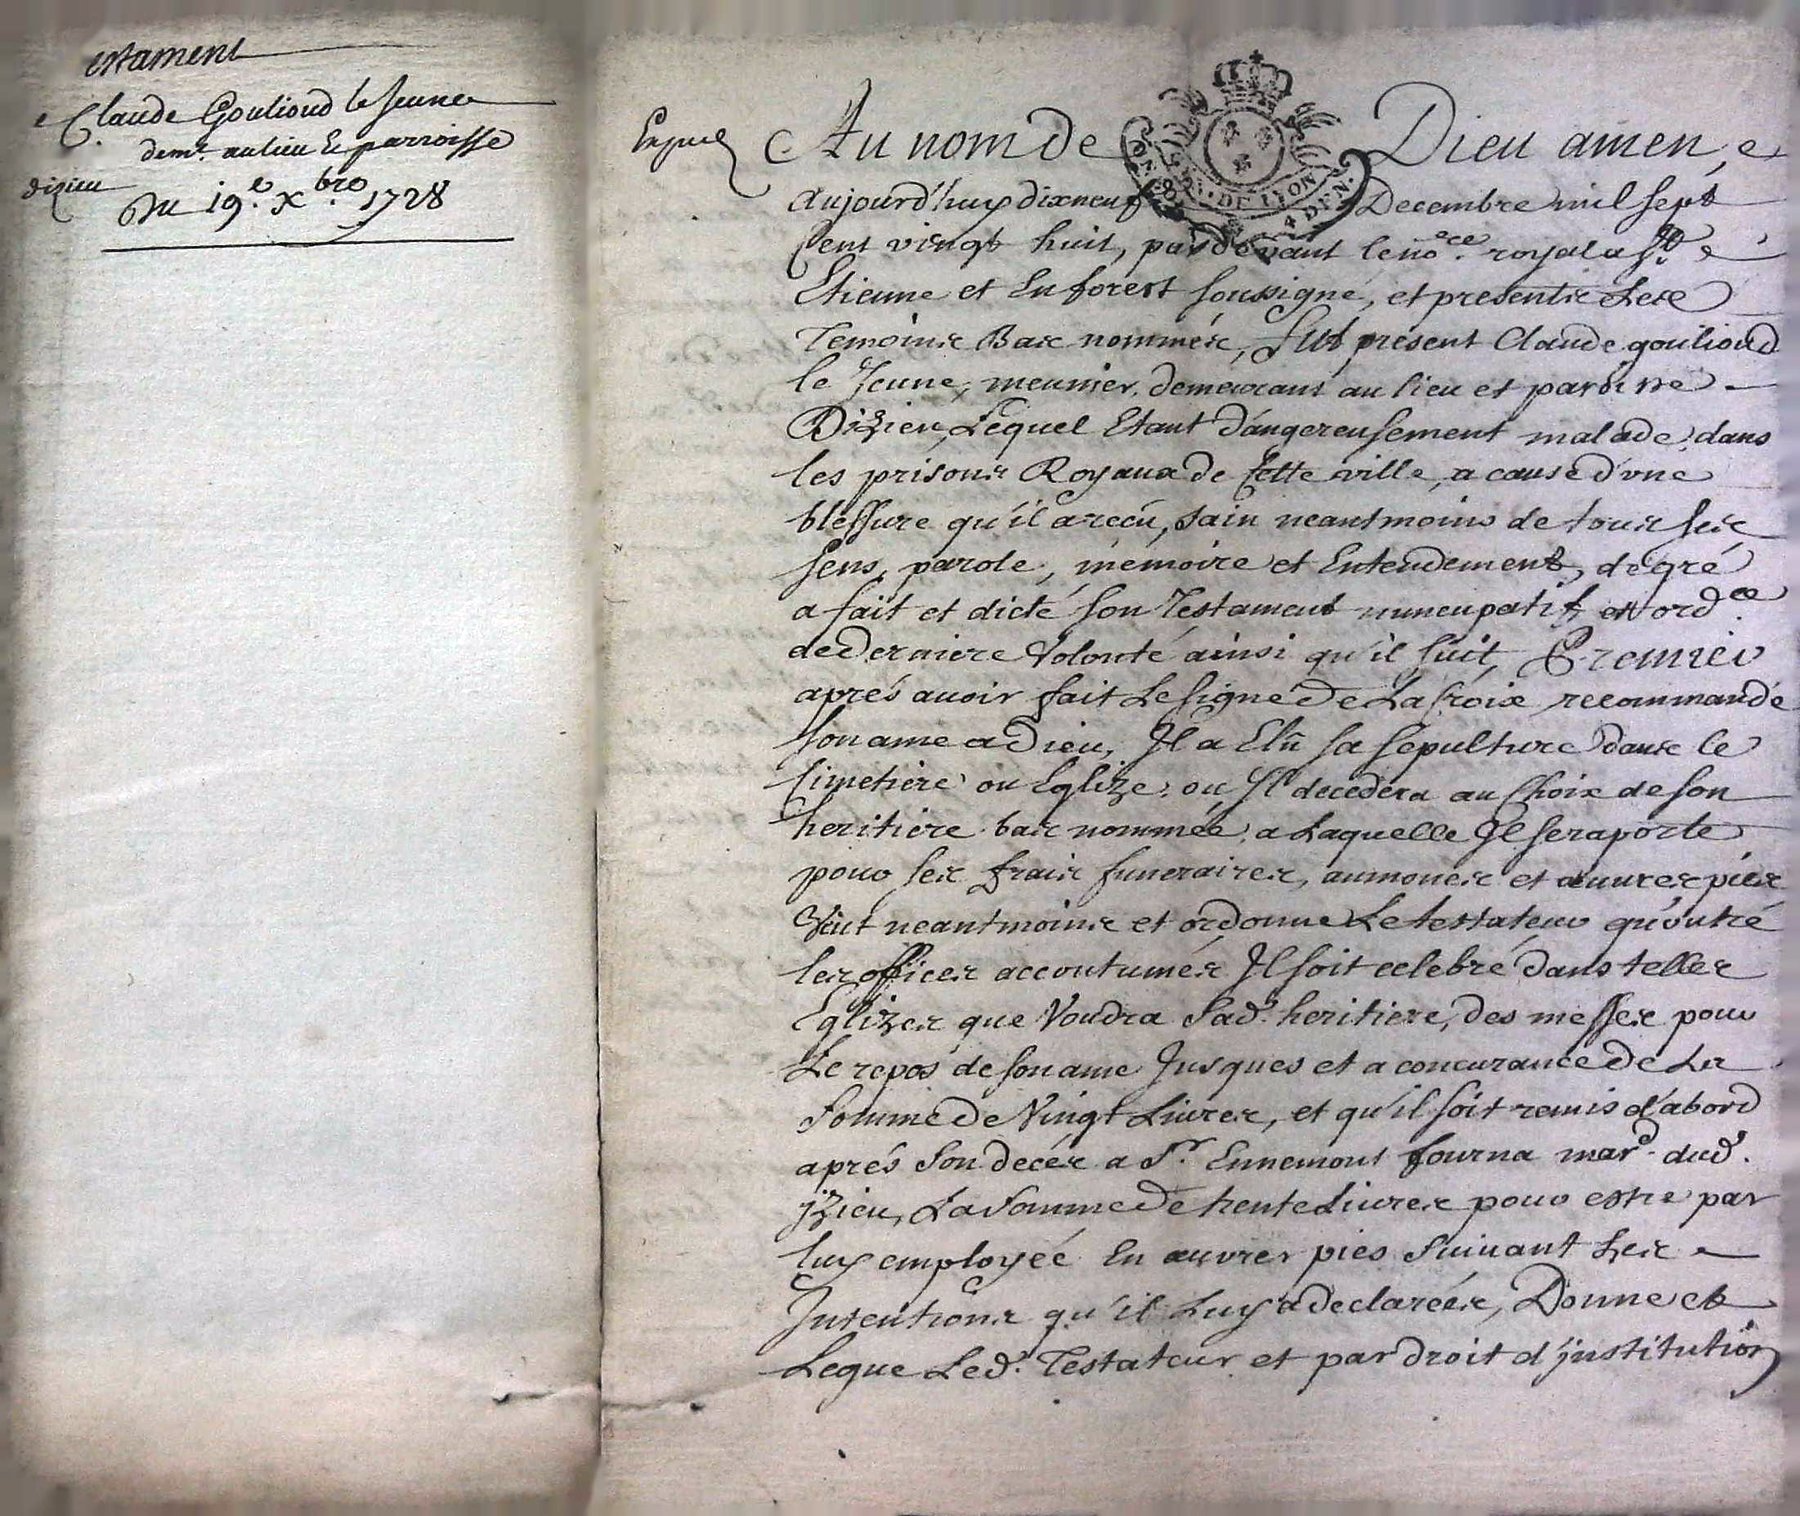 estament
Claude Goulioud le Jeune
demt. au lieu et parroisse
dizieu
Du 19.e Xbre. 1728
Au nom de Dieu amen, e
DE LYON
4 DEN.
Aujourd'huy dixneuf Decembre mil sept
Cent vingt huit, pardevant le nore. royal a St. e
Etienne et En forest soussigné, et presents Les
Temoins Bas nommés, fut present Claude goulioud
le Jeune, meunier, demeurant au lieu et paroisse
Dizieu, Lequel Etant dangereusement malade, dans
les prisons Royaux de Cette ville, a cause d'une
blessure qu'il a recû, sain neantmoins de tous ses
sens, parole, memoire et Entendement, de gré
a fait et dicté son Testament nuncupatif et ordce.
de Derniere Volonté ainsi qu'il suit, Premier
aprés avoir fait Le signe De La Croix recommandé
son ame a Dieu, Il a Elû sa sepulture dans le
Cimetiere ou Eglize, ou Il decedera au Choix de son
heritiere bas nommée, a Laquelle Il se raporte
pour ses frais funeraires, aumones et œuvres pies
Veut neantmoins et ordonne Le testateur qu'outre
les offices accoutumés Il soit celebré dans telles
Eglizes que Voudra Sad. heritiere, des messes pour
Le repos de son ame Jusques et a concurance De La
Somme De Vingt Livres, et qu'il soit remis d'abord
aprés Son decés a Sr. Ennemont fourna mard. dud.
jzieu, La Somme De trente Livres pour estre par
luy employée En œuvres pies Suivant Les
Intentions qu'il Luy a declarées, Donne et
Legue Led. Testateur et par droit d'jnstitution